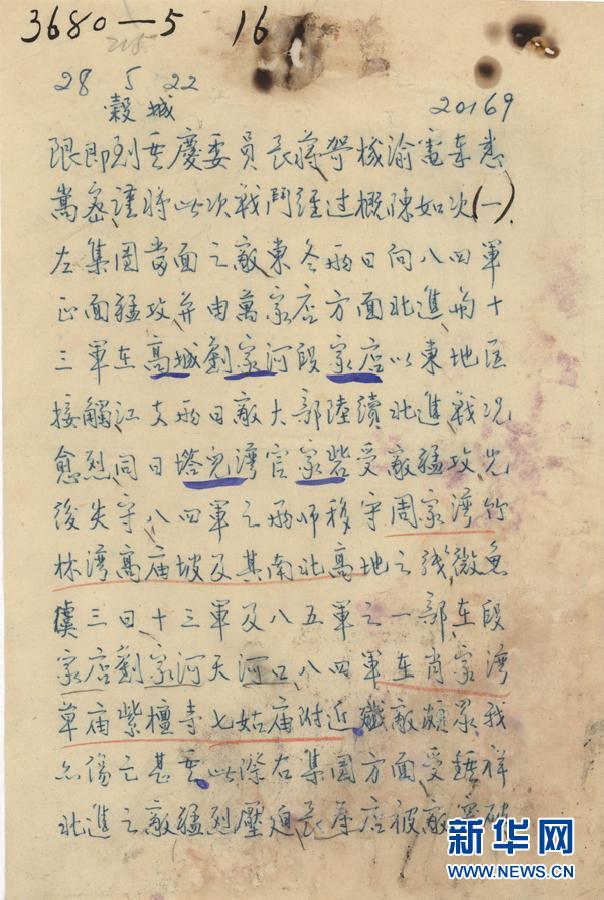 3680—5 16
215
28 5 22
穀城 20169
限即到重慶委員長蔣譽核渝電奉悉
萬密謹將此次戰鬥經过概陳如次(一)
左集團當面之敵東冬兩日向八四軍
正面猛攻并由萬家店方面北進與十
三軍在高城劉家河段家店以東地区
接觸江支兩日敵大部陸續北進戰况
愈烈同日塔兒湾官家砦受敵猛攻先
後失守八四軍之兩师移守周家湾竹
林湾高庙坡及其南北高地之线微魚
虞三日十三軍及八五軍之一部在段
家店劉家河天河口八四軍在肖家湾
草庙紫檀寺七姑庙附近殲敵頗眾我
亦傷亡甚重此際右集團方面受鍾祥
北進之敵猛烈壓迫長壽店被敵突破
新华网
WWW.NEWS.CN